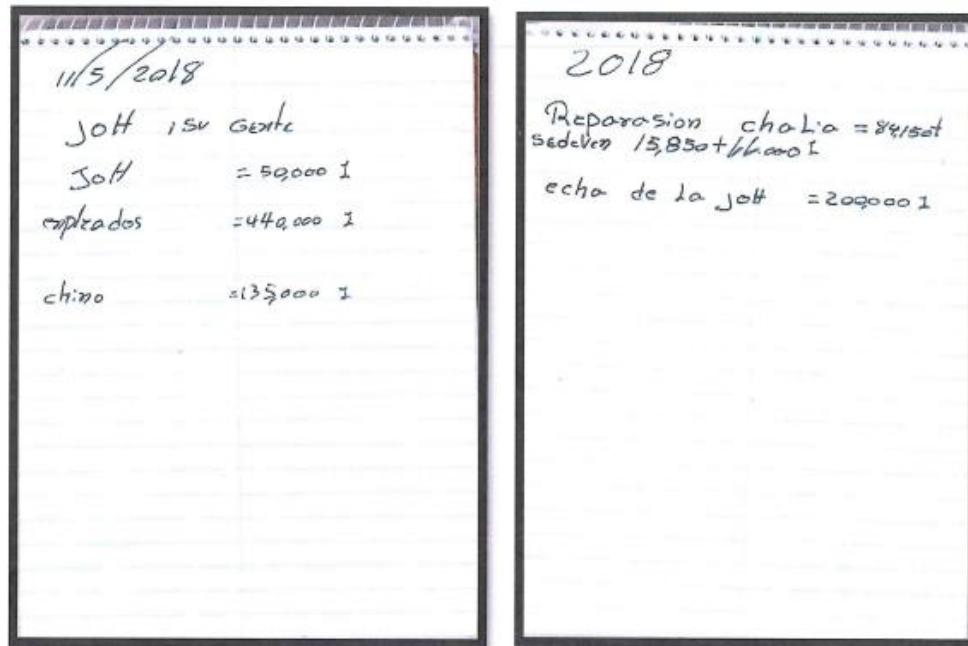 11/5/2018
JOH i SU GENTE
JOH = 50,000 I
enpleados = 440,000 I
chino = 135,000 I
2018
Reparasion chaLia = 84,150 t
sedeven 15,850 + 66.000 I
echa de La JOH = 200,000 I